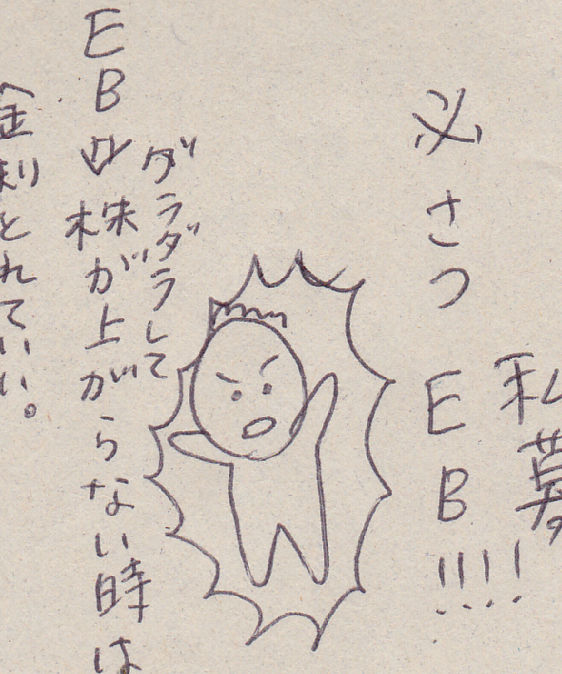 私募
必さつEB!!!!
ダラダラして
EB⇨株が上がらない時は
金利とれていい。